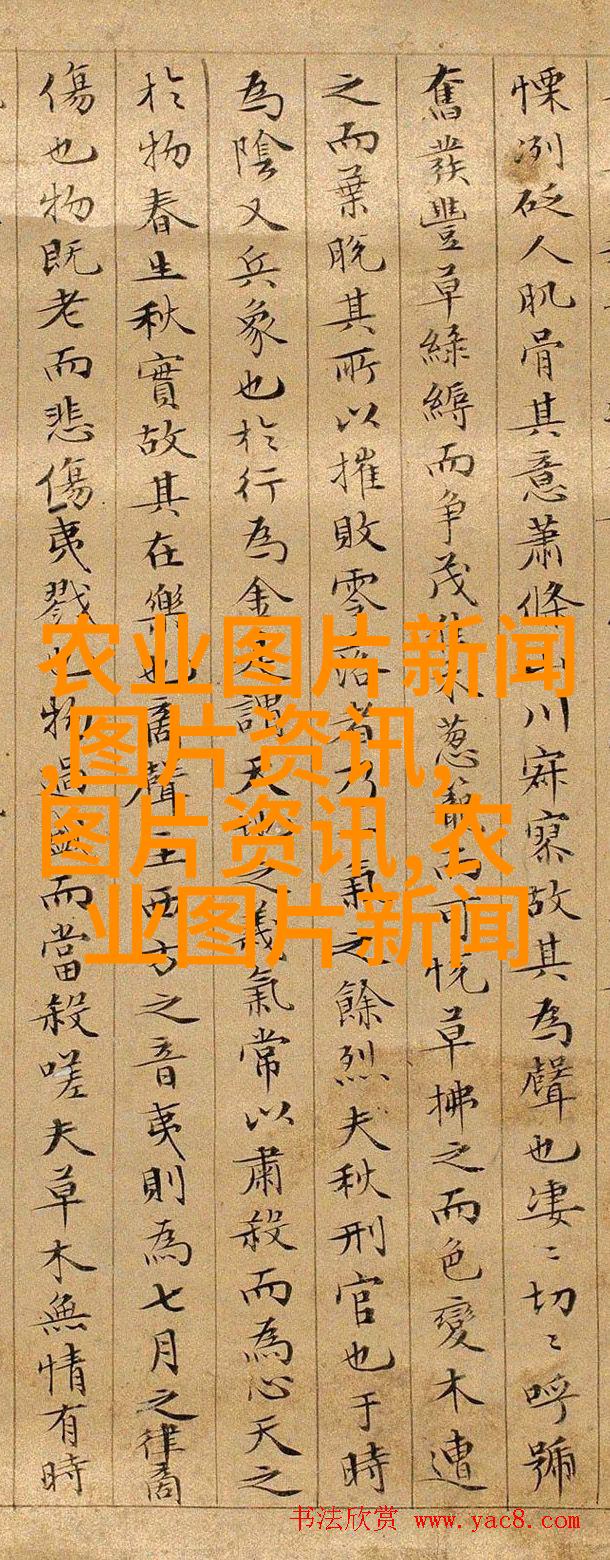 慄冽砭人肌骨其意蕭條山川寂寥故其為聲也凄〻切〻呼號
奮發豐草綠縟而争茂佳木葱蘢而可悅草拂之而色變木遭
之而葉脫其所以摧敗零落者乃一氣之餘烈夫秋刑官也于時
為陰又兵象也於行為金是謂天地之義氣常以肅殺而為心天之
於物春生秋實故其在樂也商聲主西方之音夷則為七月之律商
傷也物既老而悲傷夷戮也物過盛而當殺嗟夫草木無情有時
农业图片新闻
,图片资讯,
图片资讯,农
业图片新闻
书法欣赏 www.yac8.com